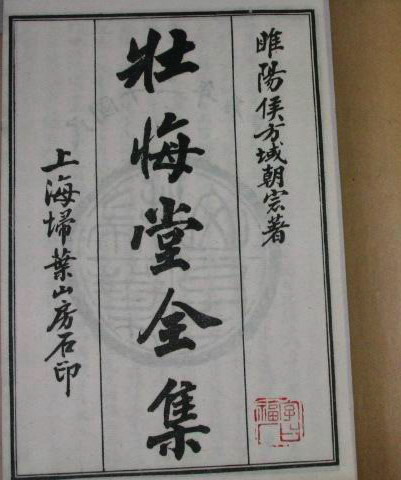 睢陽侯方域朝宗著
壯悔堂全集
上海埽葉山房石印